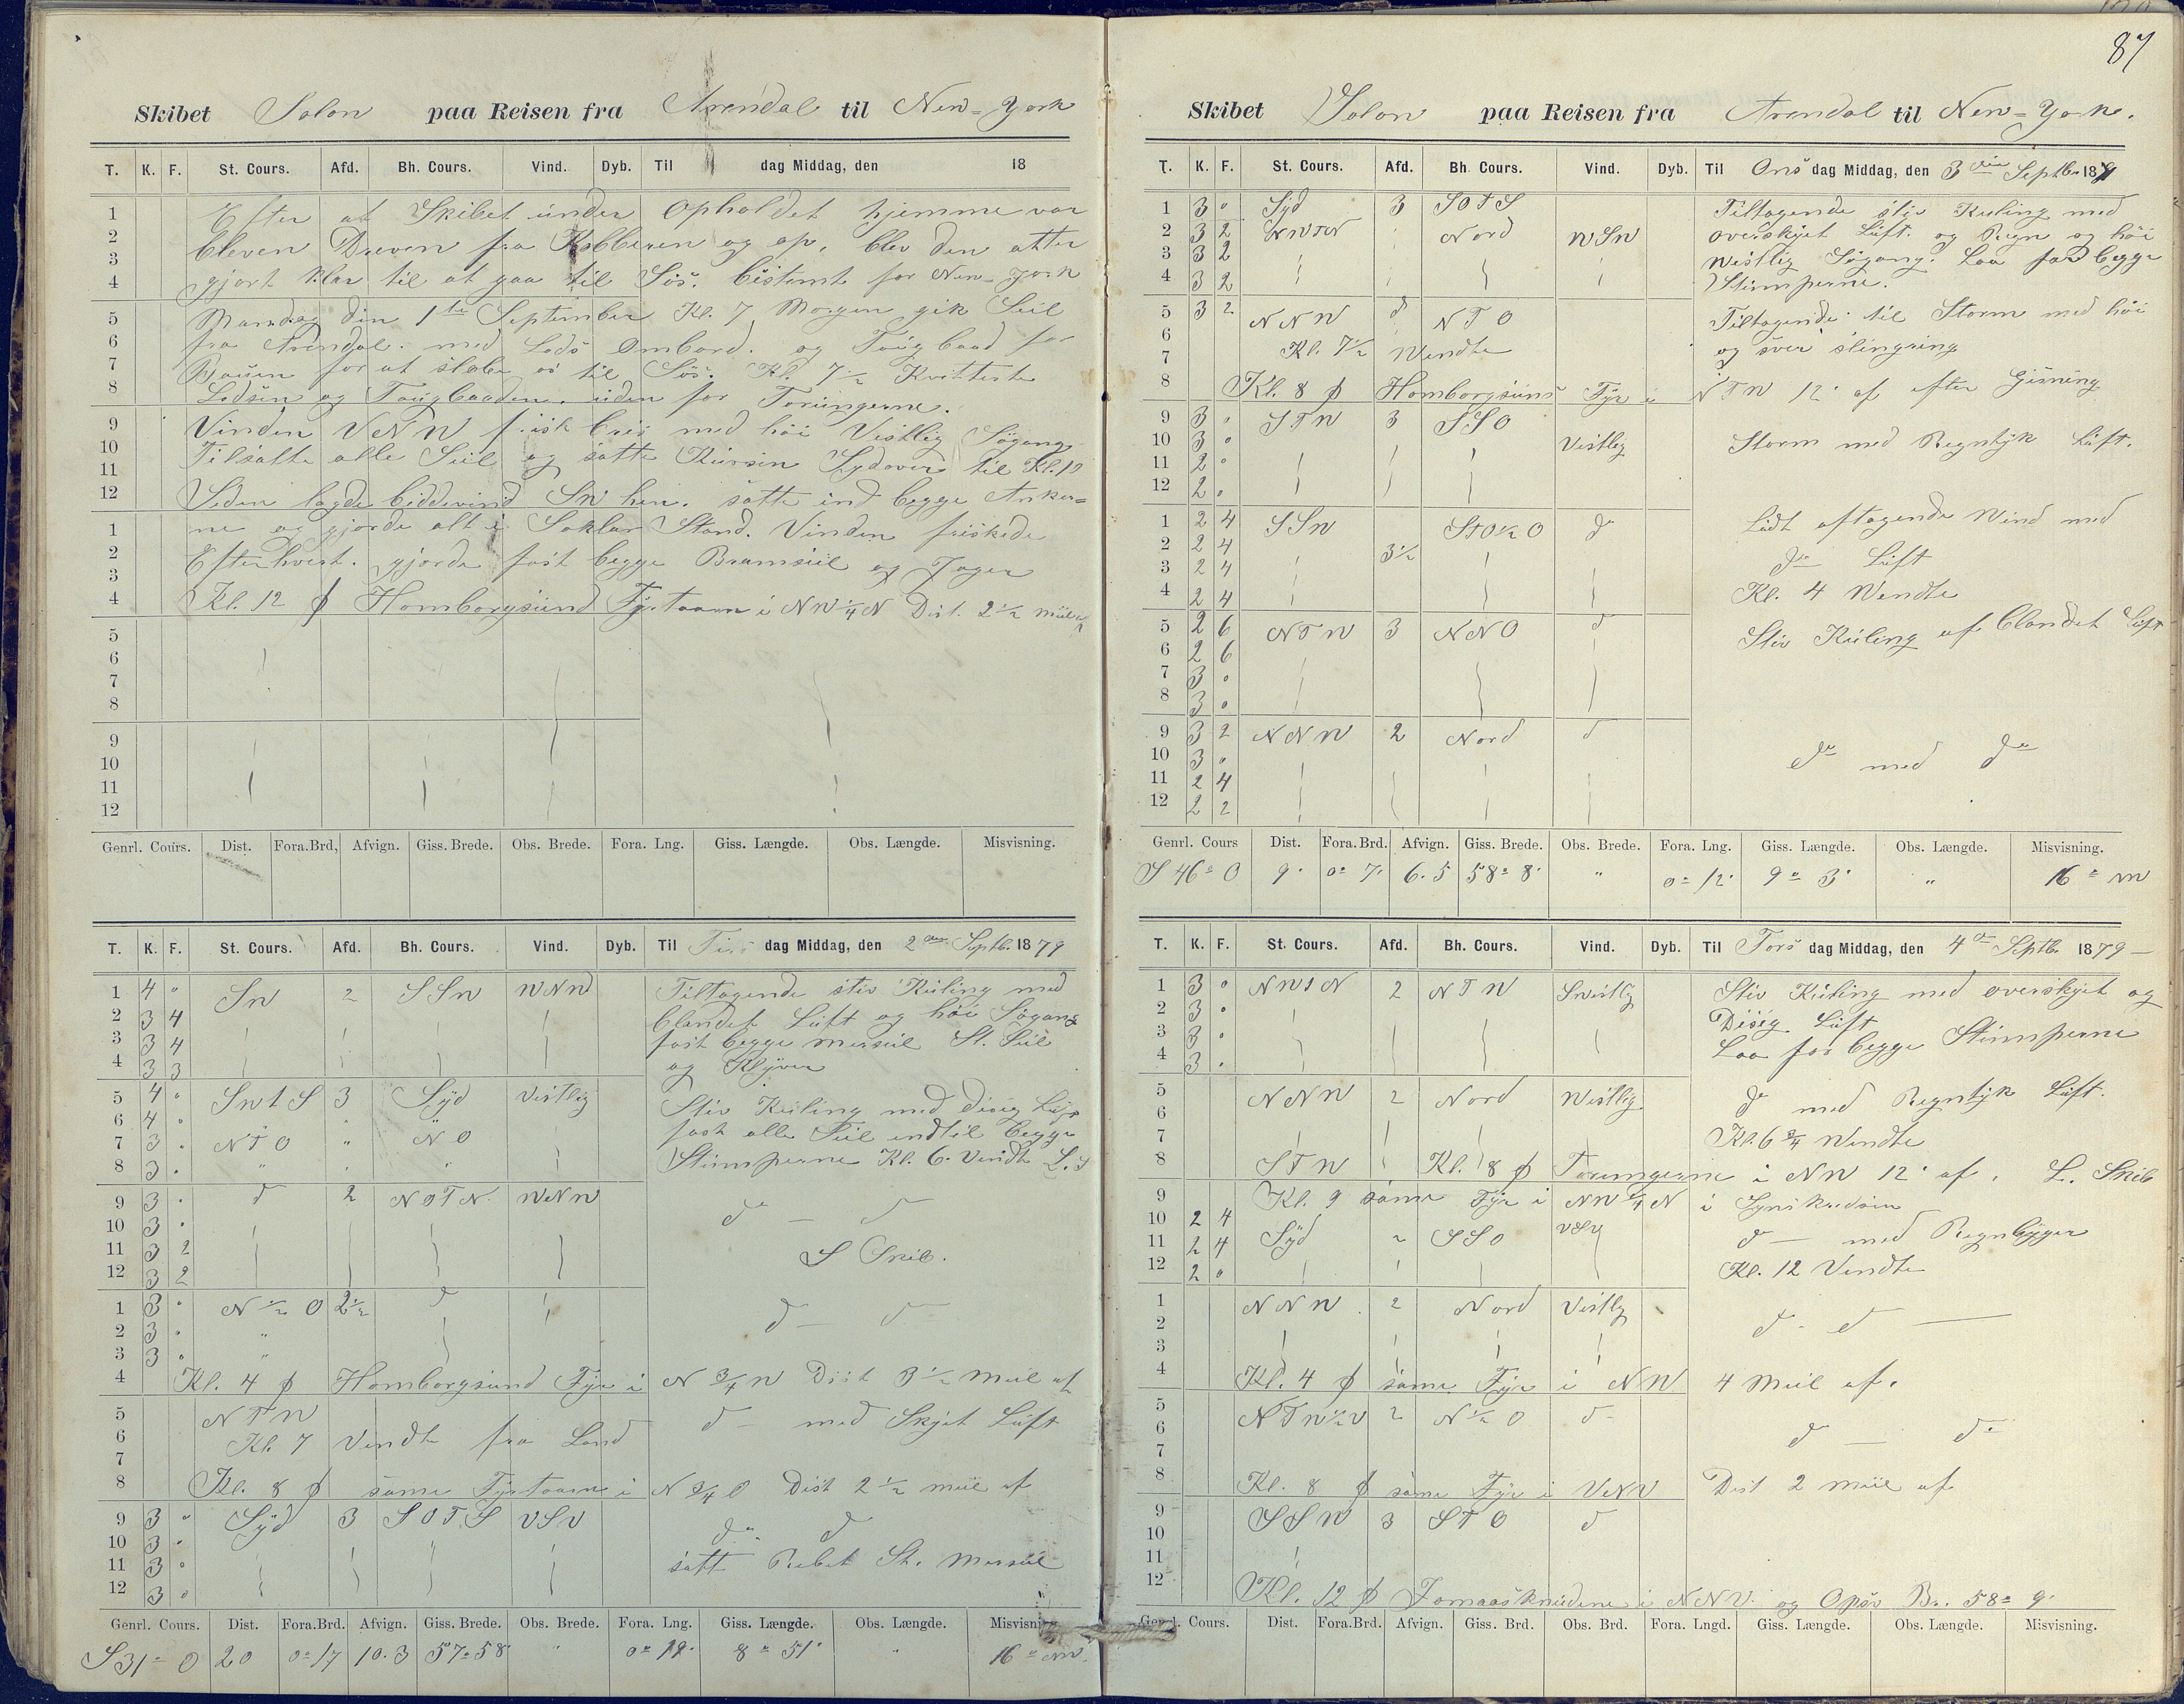 Skibet Solon paa Reisen fra Arendal til New-York
T. K. F. St. Cours. Afd. Bh. Cours. Vind. Dyb. Til dag Middag, den 18
1 Efter at Skibet under Opholdet hjemme var
2 bleven Dreven fra og op, blev den atter
3
4 gjort klar til at gaa til Sös. bestemt for New-York
5 Mandag den 1ste September Kl. 7 Morgen gik Seil
6 fra Arendal. med Lods Ombord. og Taugbaad for
7 Bauen for at slæbe os til Sös. Kl. 7 1/2 Kvitterte
8 Lodsen og Taugbaaden. uden for Torungerne.
9 Vinden VNW frisk bris med höi Vestlig Sögang
10 Tilsatte alle Seil og satte Kursen Sydover til Kl. 10
11
12 Siden lagde biddevind SW hen. satte ind begge Anker=
1 ne og gjorde alt i Söklar Stand. Vinden friskede
2 Efterhvert. gjorde fast begge Bramseil og Jager
3
4 Kl. 12 ϕ Homborgsund Fyrtaarn i NW 1/4 N Dist. 2 1/2 miil af
5
6
7
8
9
10
11
12
Genrl. Cours. Dist. Fora.Brd, Afvign. Giss. Brede. Obs. Brede. Fora. Lng. Giss. Længde. Obs. Længde. Misvisning.
T. K. F. St. Cours. Afd. Bh. Cours. Vind. Dyb. Til Tirs dag Middag, den 2den Septbr. 1879
1 4 " SW 2 SSW WNW Tiltagende stiv Kuling med
2 3 4 blandet Luft og höi Sögang
3 3 4 fast begge mersseil St. Seil
4 3 3 og Klyver
5 4 " SWtS 3 Syd Vestlig Stiv Kuling med disig Luft
6 4 " fast alle Seil indtil begge
7 3 " NTO " NO
8 3 " Stumperne Kl. 6. Vendt
9 3 " d 2 NOTN WNW do — do
10 3 "
11 3 2 S Skib.
12 3 2
1 3 " N 1/2 O 2 1/2 d d — d
2 3 "
3 3 "
4 Kl. 4 ϕ Homborgsund Fyr i N 3/4 W Dist 3 1/2 Miil af
5 NTW d — med Skyet Luft
6 Kl. 7 Vendte fra Land
7
8 Kl. 8 ϕ samme Fyrtaarn i N 3/4 O Dist 2 1/2 miil af
9 3 " Syd 3 SOTS VSV do d
10 3 "
11 3 " satt Rebet St. Mersseil
12 3 "
Genrl. Cours. Dist. Fora.Brd. Afvign. Giss. Brede. Obs. Brede. Fora. Lng. Giss. Længde. Obs. Længde. Misvisning.
S 31° O 20 0° 17 10.3 57° 58' " 0° 19' 8° 51' " 16° NW.
87
Skibet Solon paa Reisen fra Arendal til New-York.
T. K. F. St. Cours. Afd. Bh. Cours. Vind. Dyb. Til Ons dag Middag, den 3die Septbr. 1879
1 3 " Syd 3 SOTS Tiltagende stiv Kuling med
2 3 2 NWTN Nord WSW overskyet Luft. og Regn og höi
3 3 2 Westlig Sögang. Laa for begge
4 3 2 Stumperne.
5 3 2 NNW d NTO Tiltagende til Storm med höi
6 og svær slingring
7 Kl. 7 1/2 Wendte
8 Kl. 8 ϕ Homborgsund Fyr i NTW 12' af efter Gisning
9 3 " STW 3 SSO
10 3 " Vestlig Storm med Regntyk Luft.
11 2 "
12 2 "
1 2 4 SSW StO 1/2 O do Lidt aftagende Wind med
2 2 4 3 1/2 do Luft
3 2 4
4 2 4 Kl. 4 Wendte
5 2 6 NTW 3 NNO d Stiv Kuling af blandet Luft
6 2 6
7 3 "
8 3 "
9 3 2 NNW 2 Nord d do med do
10 3 "
11 2 4
12 2 2
Genrl. Cours Dist. Fora.Brd. Afvign. Giss. Brede. Obs. Brede. Fora. Lng. Giss. Længde. Obs. Længde. Misvisning.
S 46° O 9' 0° 7' 6.5 58° 8' " 0° 12' 9° 3' " 16° NW
T. K. F. St. Cours. Afd. Bh. Cours. Vind. Dyb. Til Tors dag Middag, den 4de Septbr. 1879 —
1 3 " NWtN 2 NTW SWestlig Stiv Kuling med overskyet og
2 3 " Disig Luft
3 3 " Laa for begge Stumperne
4 3 "
5 NNW 2 Nord Westlig do med Regntyk Luft.
6
7 Kl. 6 3/4 Wendte
8 STW Kl. 8 ϕ Torungerne i NW 12' af. L. Skib
9 Kl. 9 samme Fyr i NW 1/4 N i Synskredsen
10 2 4
11 2 4 Syd " SSO VSV d — med Regnbyger
12 2 " Kl. 12 Vendte
1 NNW 2 Nord Vestlig d - d —
2
3
4 Kl. 4 ϕ samme Fyr i NW 4 Miil af.
5 NTW 1/2 V 2 N 1/2 O d d — do
6
7
8 Kl. 8 ϕ samme Fyr i VNV Dist 2 miil af
9 SSW 3 STO d
10
11
12 Kl. 12 ϕ Jomaasknudene i NNV. og Br. 58° 9'
Genrl. Cours. Dist. Fora.Brd. Afvign. Giss. Brd. Obs. Brd. Fora. Lngd. Giss. Længde. Obs. Længde. Misvisning.